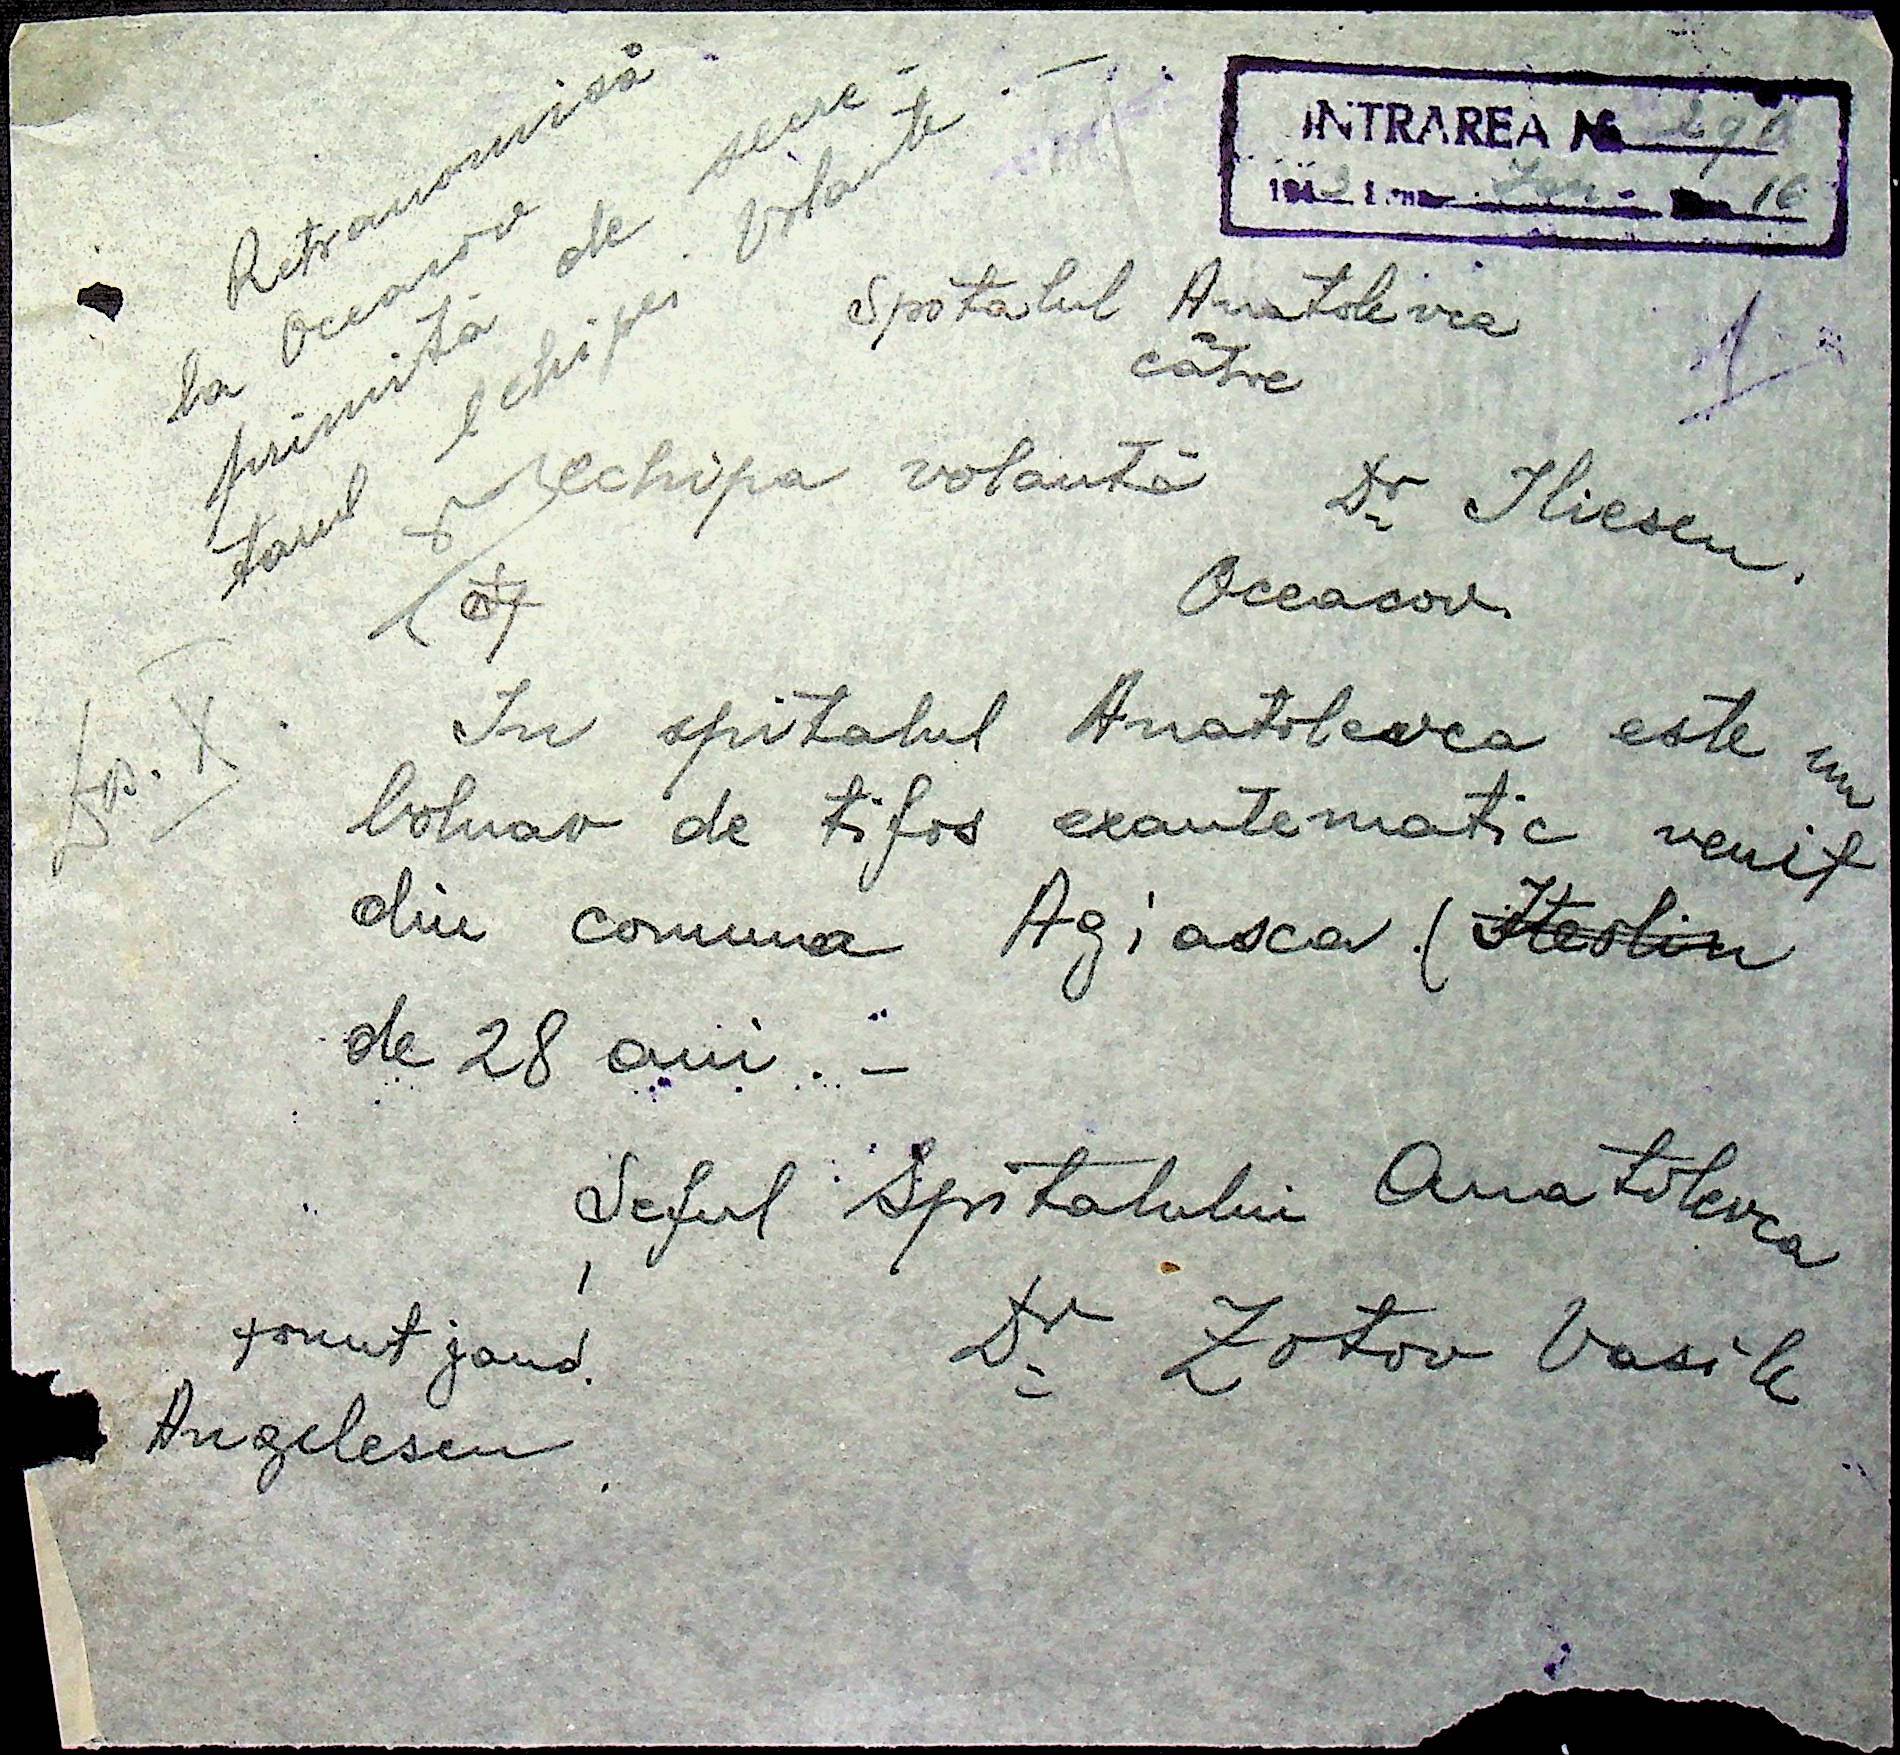 INTRAREA No 298
1942 Luna Ian. Ziua 16
Retransmisă
la Oceacov
primită de secre-
tarul echipei volante. —
Spitalul Anatolevca
către
echipa volantă Dr Iliescu.
Oceacov.
In spitalul Anatolevca este un
bolnav de tifos exantematic venit
din comuna Agiasca (
de 28 ani. —
Seful Spitalului Anatolevca
Dr Zotov Vasile
jand.
Angelescu.